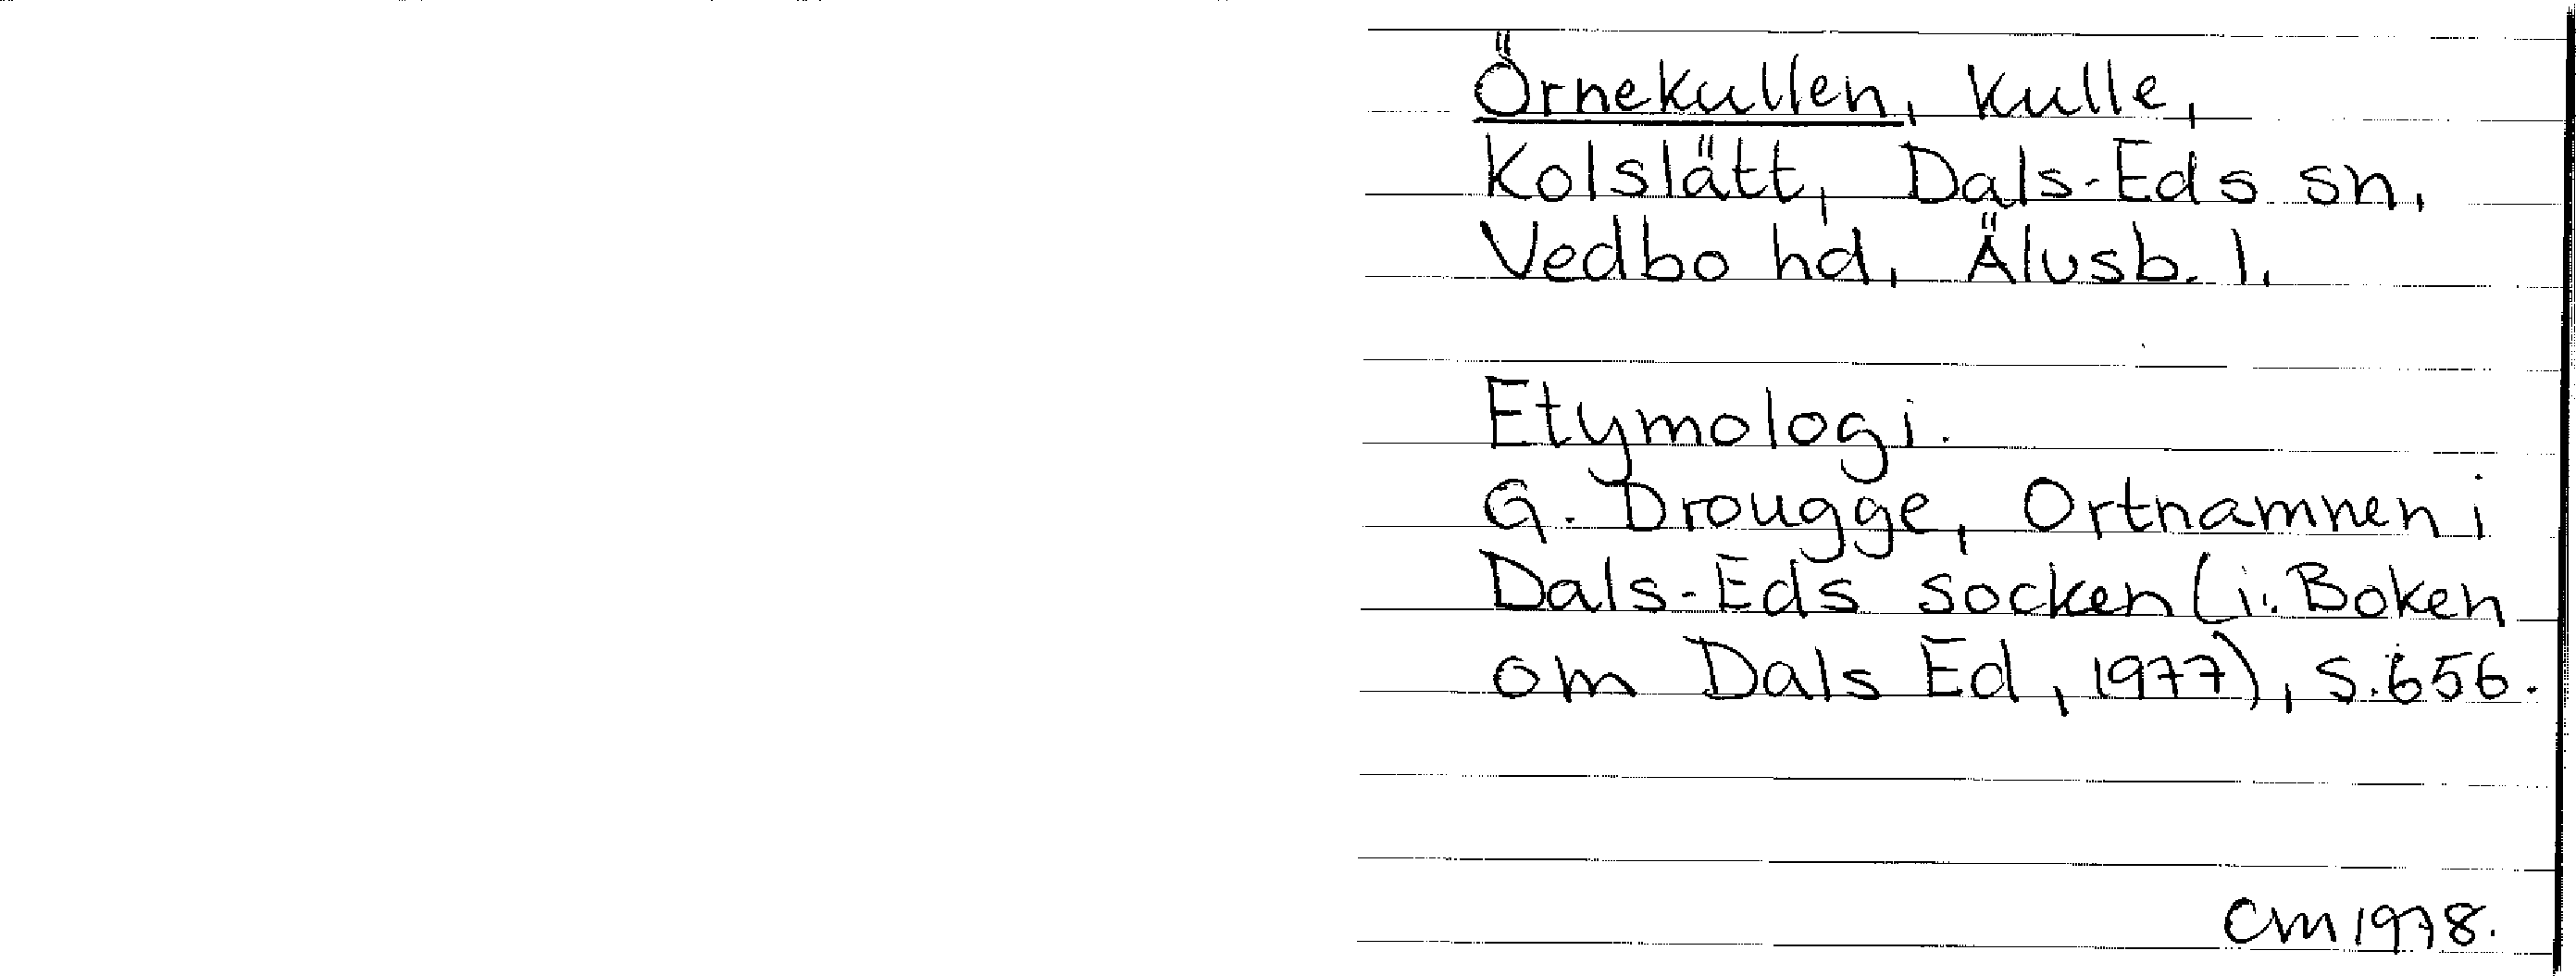 Örnekullen, kulle,
Kolslätt, Dals-Eds sn,
Vedbo hd, Älvsb. l.
Etymologi.
G. Drougge, Ortnamnen i
Dals-Eds socken (i: Boken
om Dals Ed, 1977), s. 656.
CM 1978.